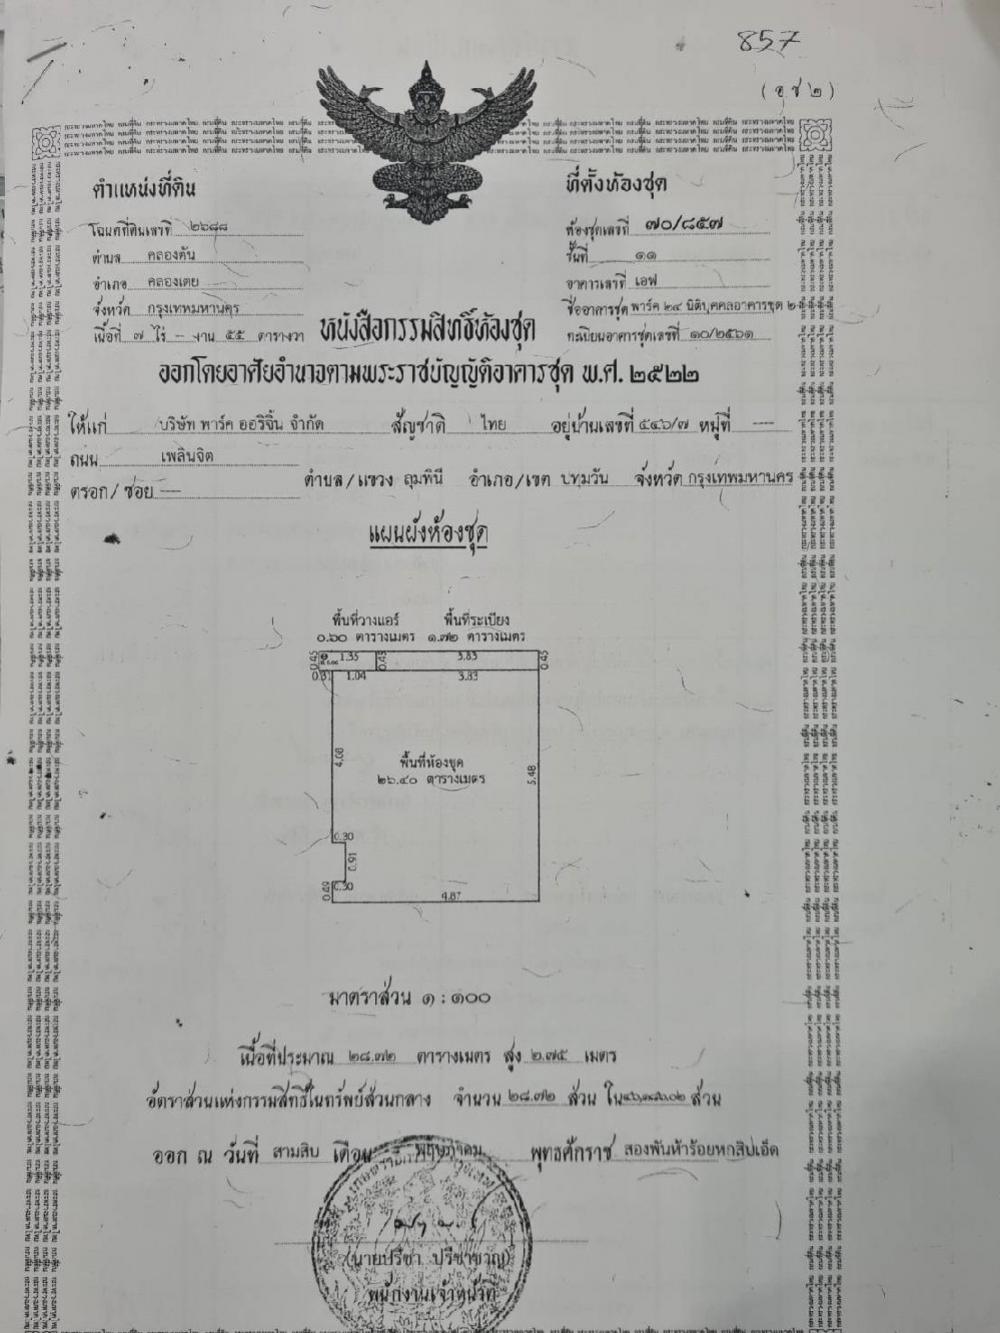 857
( อ ช ๒ )
ตำแหน่งที่ดิน
ที่ตั้งห้องชุด
โฉนดที่ดินเลขที่ ๒๖๘๘
ห้องชุดเลขที่ ๗๐/๘๕๗
ตำบล คลองตัน
ชั้นที่ ๑๑
อำเภอ คลองเตย
อาคารเลขที่ เอฟ
จังหวัด กรุงเทพมหานคร
ชื่ออาคารชุด พาร์ค ๒๔ นิติบุคคลอาคารชุด ๒
เนื้อที่ ๗ ไร่ - งาน ๕๕ ตารางวา
หนังสือกรรมสิทธิ์ห้องชุด
ทะเบียนอาคารชุดเลขที่ ๑๐/๒๕๖๑
ออกโดยอาศัยอำนาจตามพระราชบัญญัติอาคารชุด พ.ศ. ๒๕๒๒
ให้แก่ บริษัท พาร์ค ออริจิ้น จำกัด สัญชาติ ไทย อยู่บ้านเลขที่ ๕๔๖/๗ หมู่ที่ ---
ถนน เพลินจิต
ตรอก/ซอย --- ตำบล/แขวง ลุมพินี อำเภอ/เขต ปทุมวัน จังหวัด กรุงเทพมหานคร
แผนผังห้องชุด
พื้นที่วางแอร์ พื้นที่ระเบียง
๐.๖๐ ตารางเมตร ๑.๗๒ ตารางเมตร
0.45 1.35 0.45 3.83 0.45
0.31 1.04 3.83
4.08
พื้นที่ห้องชุด
๒๖.๔๐ ตารางเมตร
5.48
0.30
0.91
0.30
4.87
มาตราส่วน ๑ : ๑๐๐
เนื้อที่ประมาณ ๒๘.๗๒ ตารางเมตร สูง ๒.๗๕ เมตร
อัตราส่วนแห่งกรรมสิทธิ์ในทรัพย์ส่วนกลาง จำนวน ๒๘.๗๒ ส่วน ใน ส่วน
ออก ณ วันที่ สามสิบ เดือน พฤษภาคม พุทธศักราช สองพันห้าร้อยหกสิบเอ็ด
(นายปรีชา ปรีชาชาญ)
พนักงานเจ้าหน้าที่